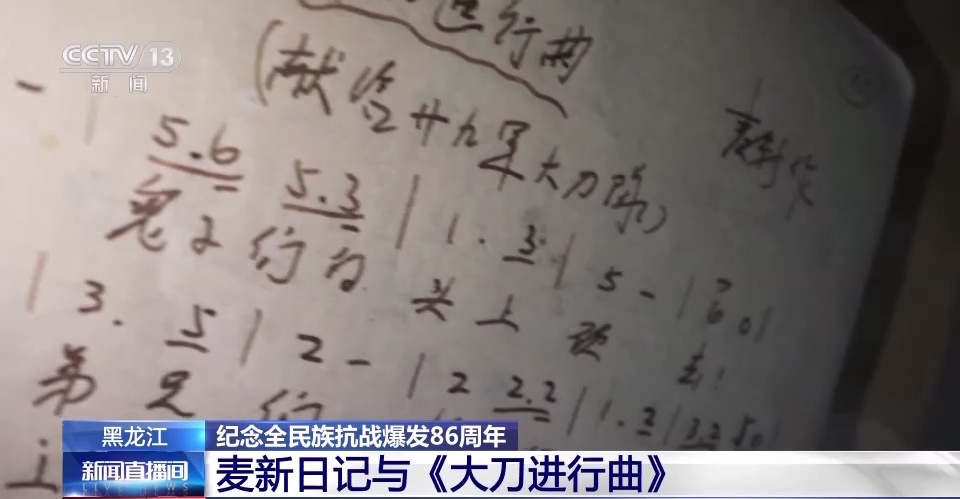 CCTV 13
新闻
进行曲
(献给廿九军大刀队)
麦新作
5.6 5.3 | 1. 3 | 5 - | 6 0 |
鬼子们的 头上 砍 去!
| 3. 5 | 2 - | 2 2.2 | 1.2 | 3 2 5 0 |
弟兄们
黑龙江
纪念全民族抗战爆发86周年
新闻直播间
LIVE NEWS
麦新日记与《大刀进行曲》